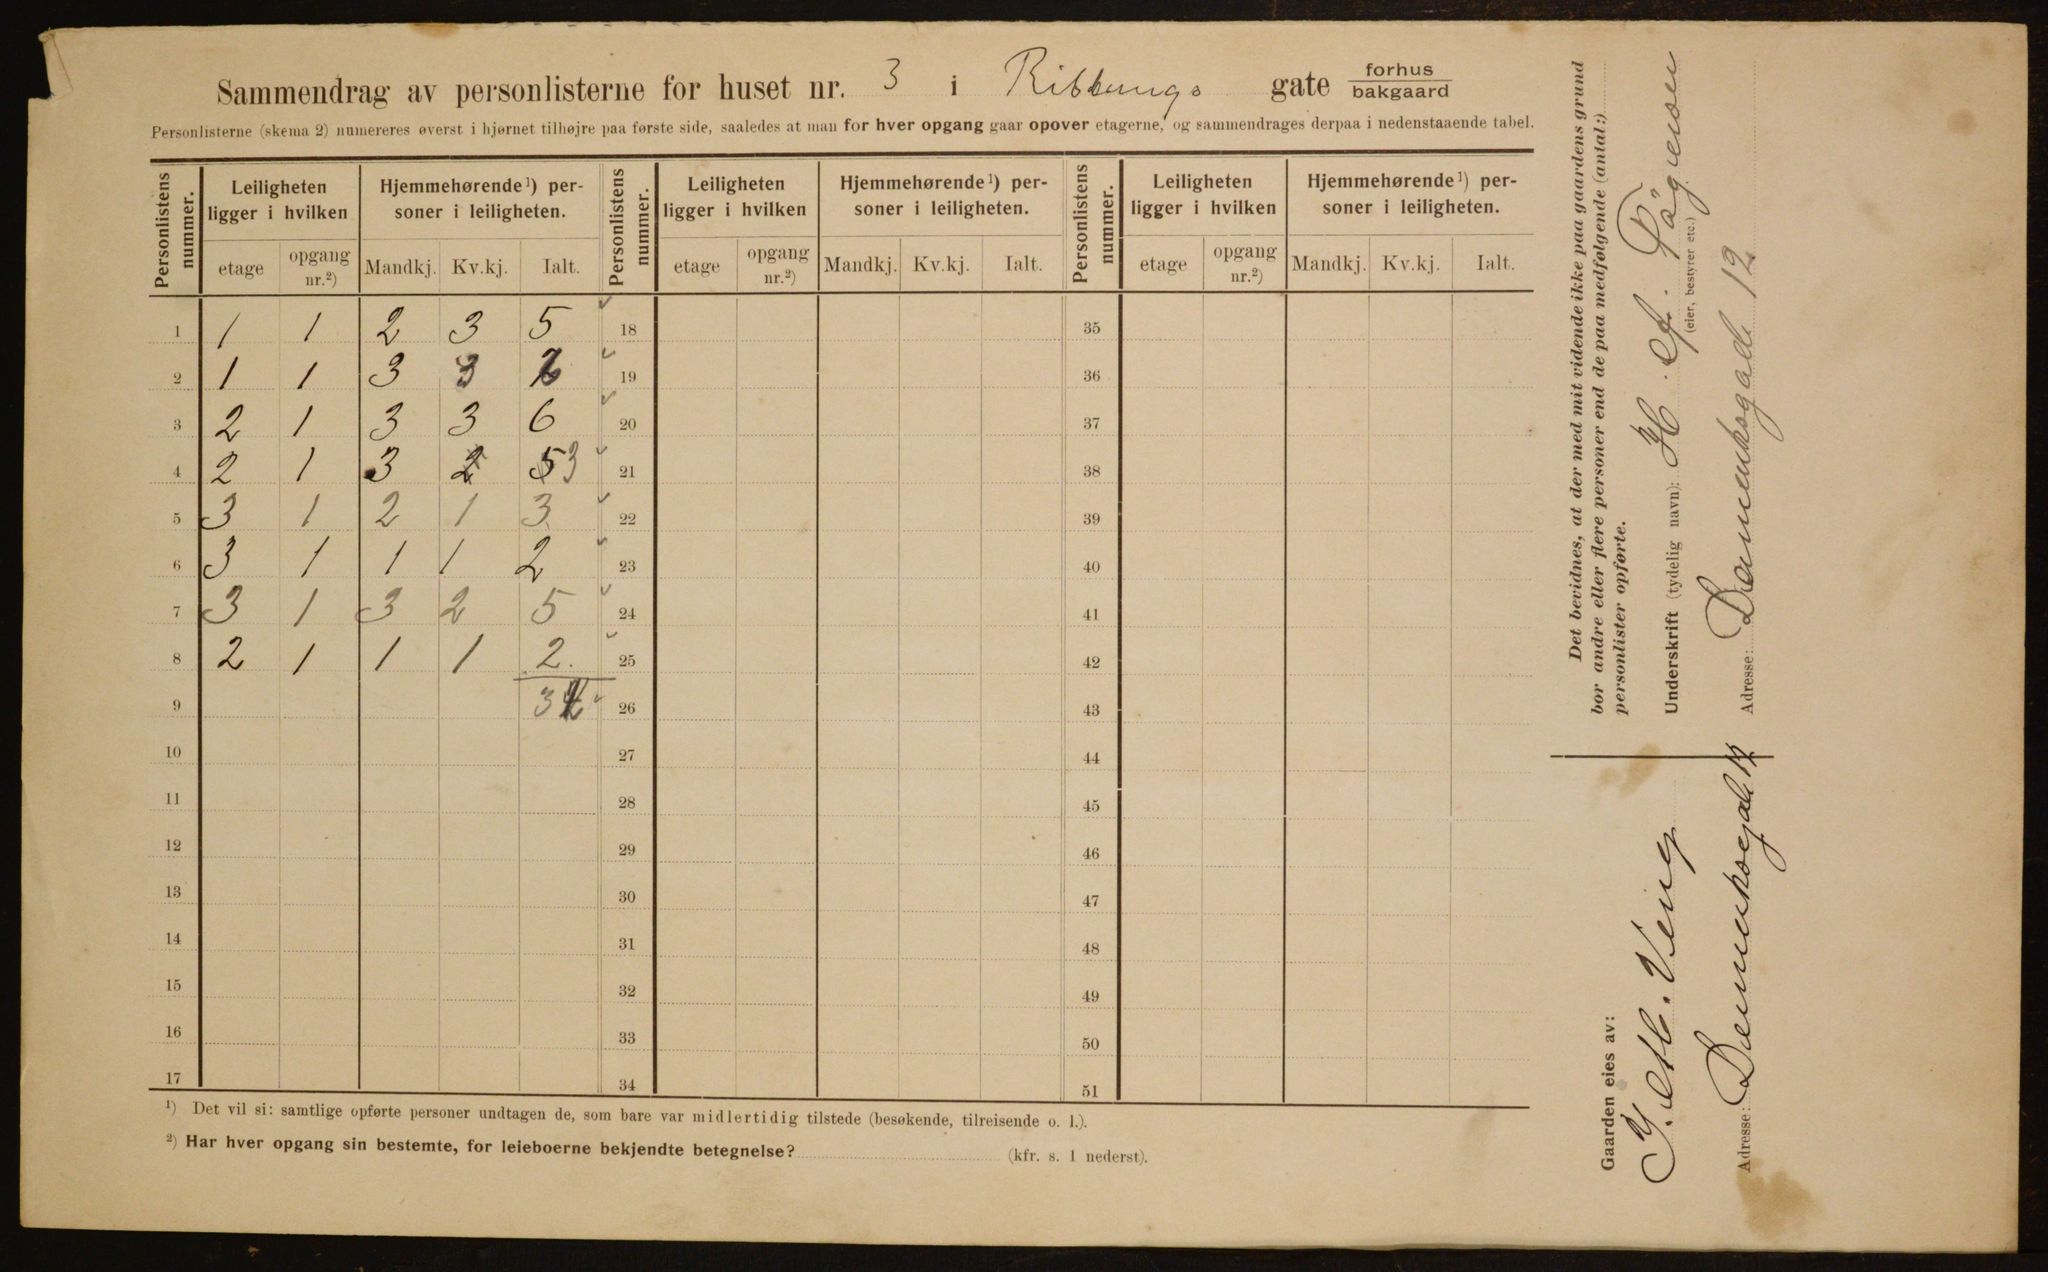 Sammendrag av personlisterne for huset nr. 3 i Ribbungs gate forhus bakgaard
Personlisterne (skema 2) numereres øverst i hjørnet tilhøjre paa første side, saaledes at man for hver opgang gaar opover etagerne, og sammendrages derpaa i nedenstaaende tabel.
Personlistens nummer. Leiligheten ligger i hvilken Hjemmehørende ¹) personer i leiligheten. Personlistens nummer. Leiligheten ligger i hvilken Hjemmehørende ¹) personer i leiligheten. Personlistens nummer. Leiligheten ligger i hvilken Hjemmehørende ¹) personer i leiligheten.
etage opgang nr.²) Mandkj. Kv.kj. Ialt. etage opgang nr.²) Mandkj. Kv.kj. Ialt. etage opgang nr.²) Mandkj. Kv.kj. Ialt.
1 1 1 2 3 5 18 35
2 1 1 3 3 19 36
3 2 1 3 3 6 20 37
4 2 1 3 2 5 3 21 38
5 3 1 2 1 3 22 39
6 3 1 1 1 2 23 40
7 3 1 3 2 5 24 41
8 2 1 1 1 2. 25 42
9 26 43
10 27 44
11 28 45
12 29 46
13 30 47
14 31 48
15 32 49
16 33 50
17 34 51
¹) Det vil si: samtlige opførte personer undtagen de, som bare var midlertidig tilstede (besøkende, tilreisende o. l.).
²) Har hver opgang sin bestemte, for leieboerne bekjendte betegnelse? (kfr. s. 1 nederst).
Det bevidnes, at der med mit vidende ikke paa gaardens grund
bor andre eller flere personer end de paa medfølgende (antal:)
personlister opførte.
Underskrift (tydelig navn): H.
(eier, bestyrer etc.)
Adresse: Danmarksgade 12
Gaarden eies av:
Veng
Adresse: Danmarksgade 12